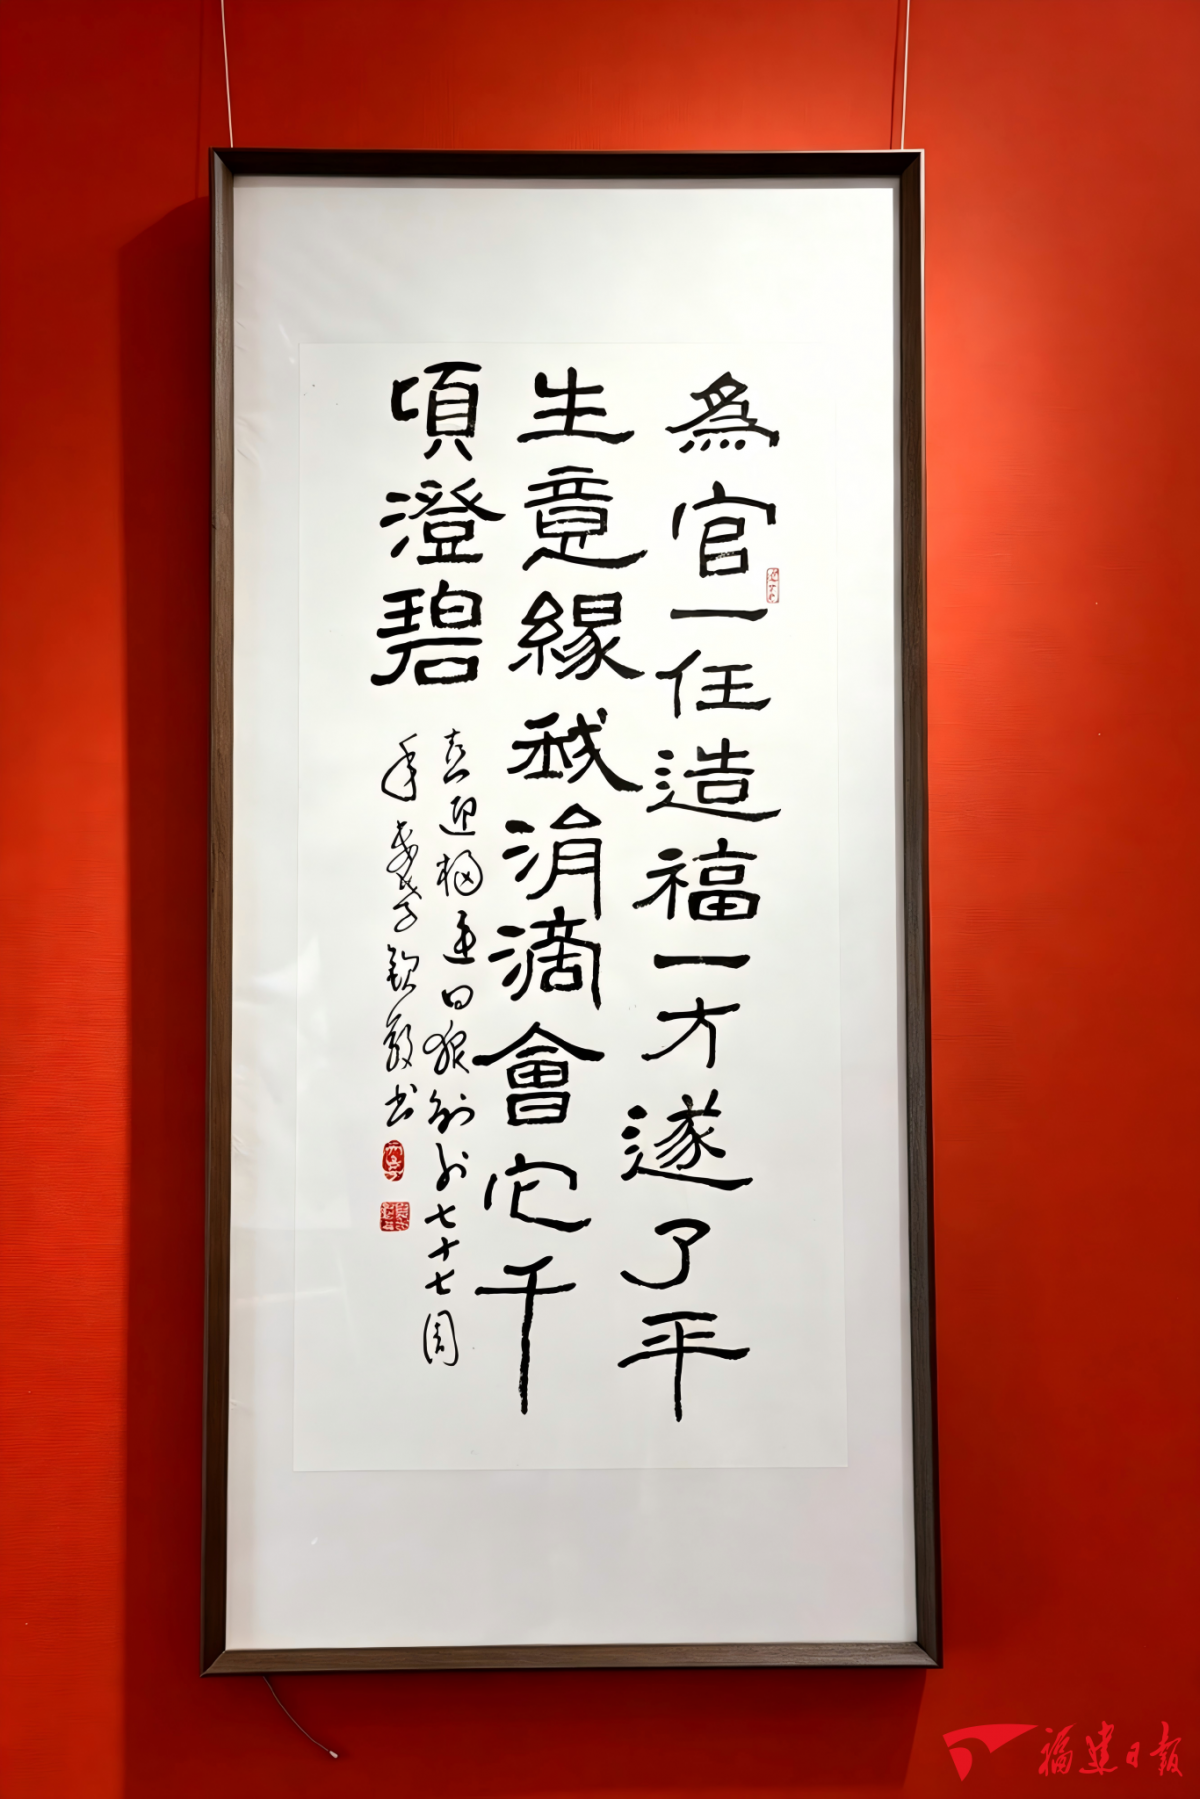 為官一任造福一方遂了平
生意緣我涓滴會它千
頃澄碧
喜迎福建日報創刊七十七周
年 書
福建日报